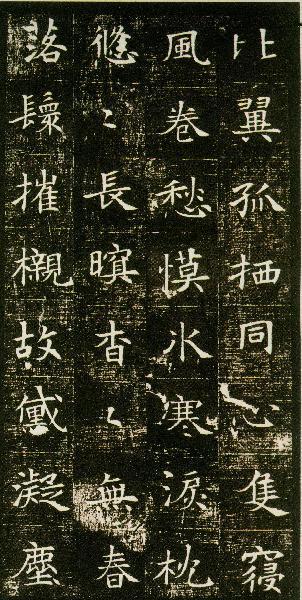 比翼孤栖同心隻寑
風卷愁幙氷寒淚枕
悠〻長暝杳〻無春
落鬟摧櫬故黛凝塵